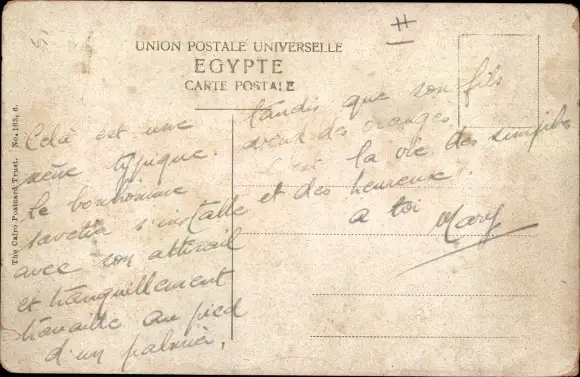 UNION POSTALE UNIVERSELLE
EGYPTE
CARTE POSTALE
The Cairo Postcard Trust. No. 165, 6.
Celà est une
scène typique.
Le bonhomme
savetier s'installe
avec son attirail
et tranquillement
travaille au pied
d'un palmier,
tandis que son fils
vend des oranges.
C'est la vie des simples
et des heureux.
a toi
Mary